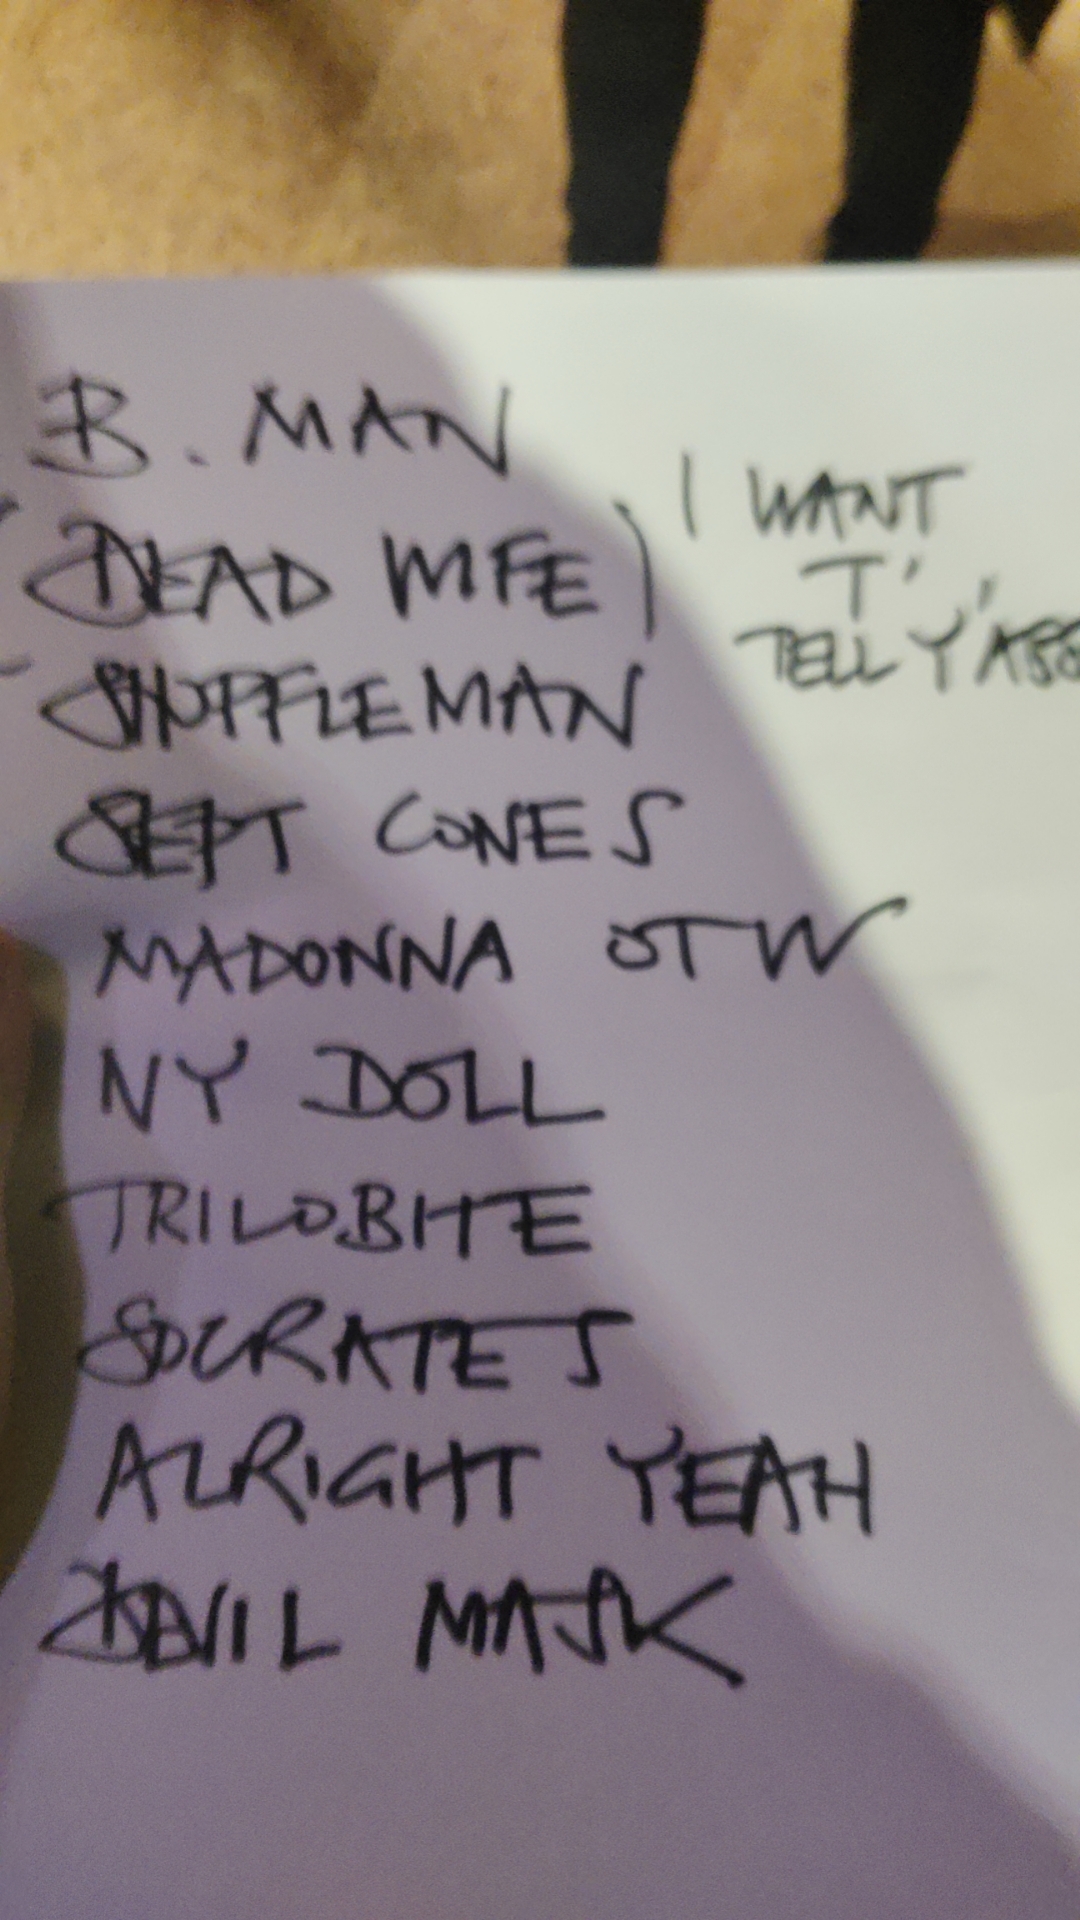 B. MAN
(DEAD WIFE)
SHUFFLEMAN
SEPT CONES
MADONNA OTW
NY DOLL
TRILOBITE
SOCRATES
ALRIGHT YEAH
DEVIL MASK
I WANT
T'
TELL Y'